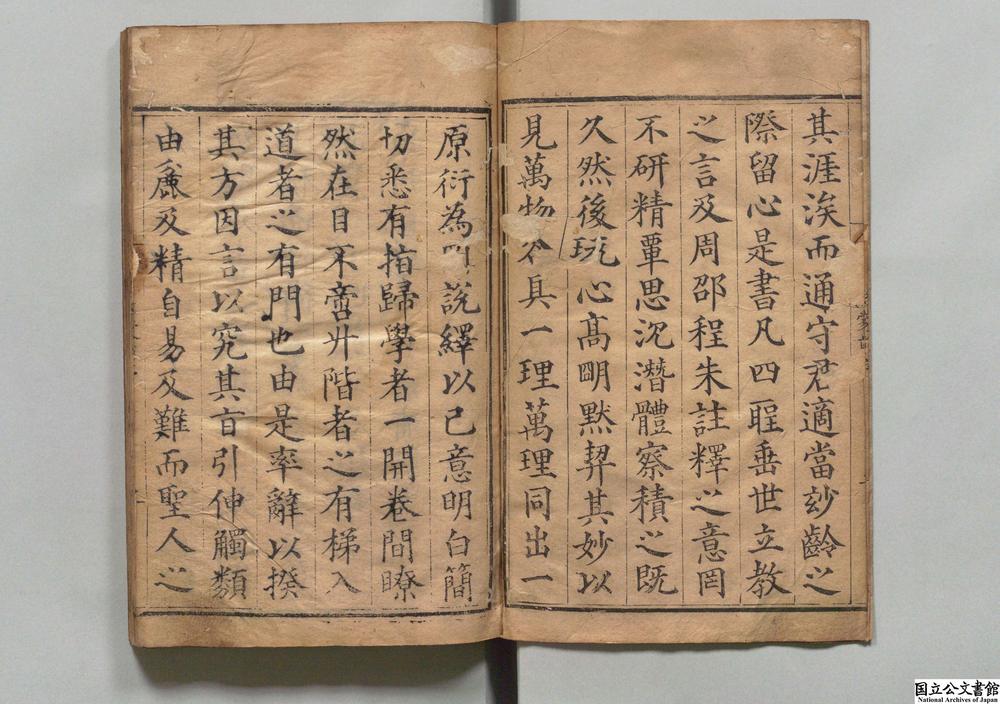 其涯涘而通守君適當玅齡之
際留心是書凡四聖垂世立教
之言及周邵程朱註釋之意罔
不研精覃思沉潛體察積之既
久然後玩心髙明默契其妙以
見萬物具一理萬理同出一
原衍為說繹以已意明白簡
切悉有指歸學者一開卷間瞭
然在目不啻升階者之有梯入
道者之有門也由是率辭以揆
其方因言以究其旨引伸觸類
由麁及精自易及難而聖人之
国立公文書館
National Archives of Japan